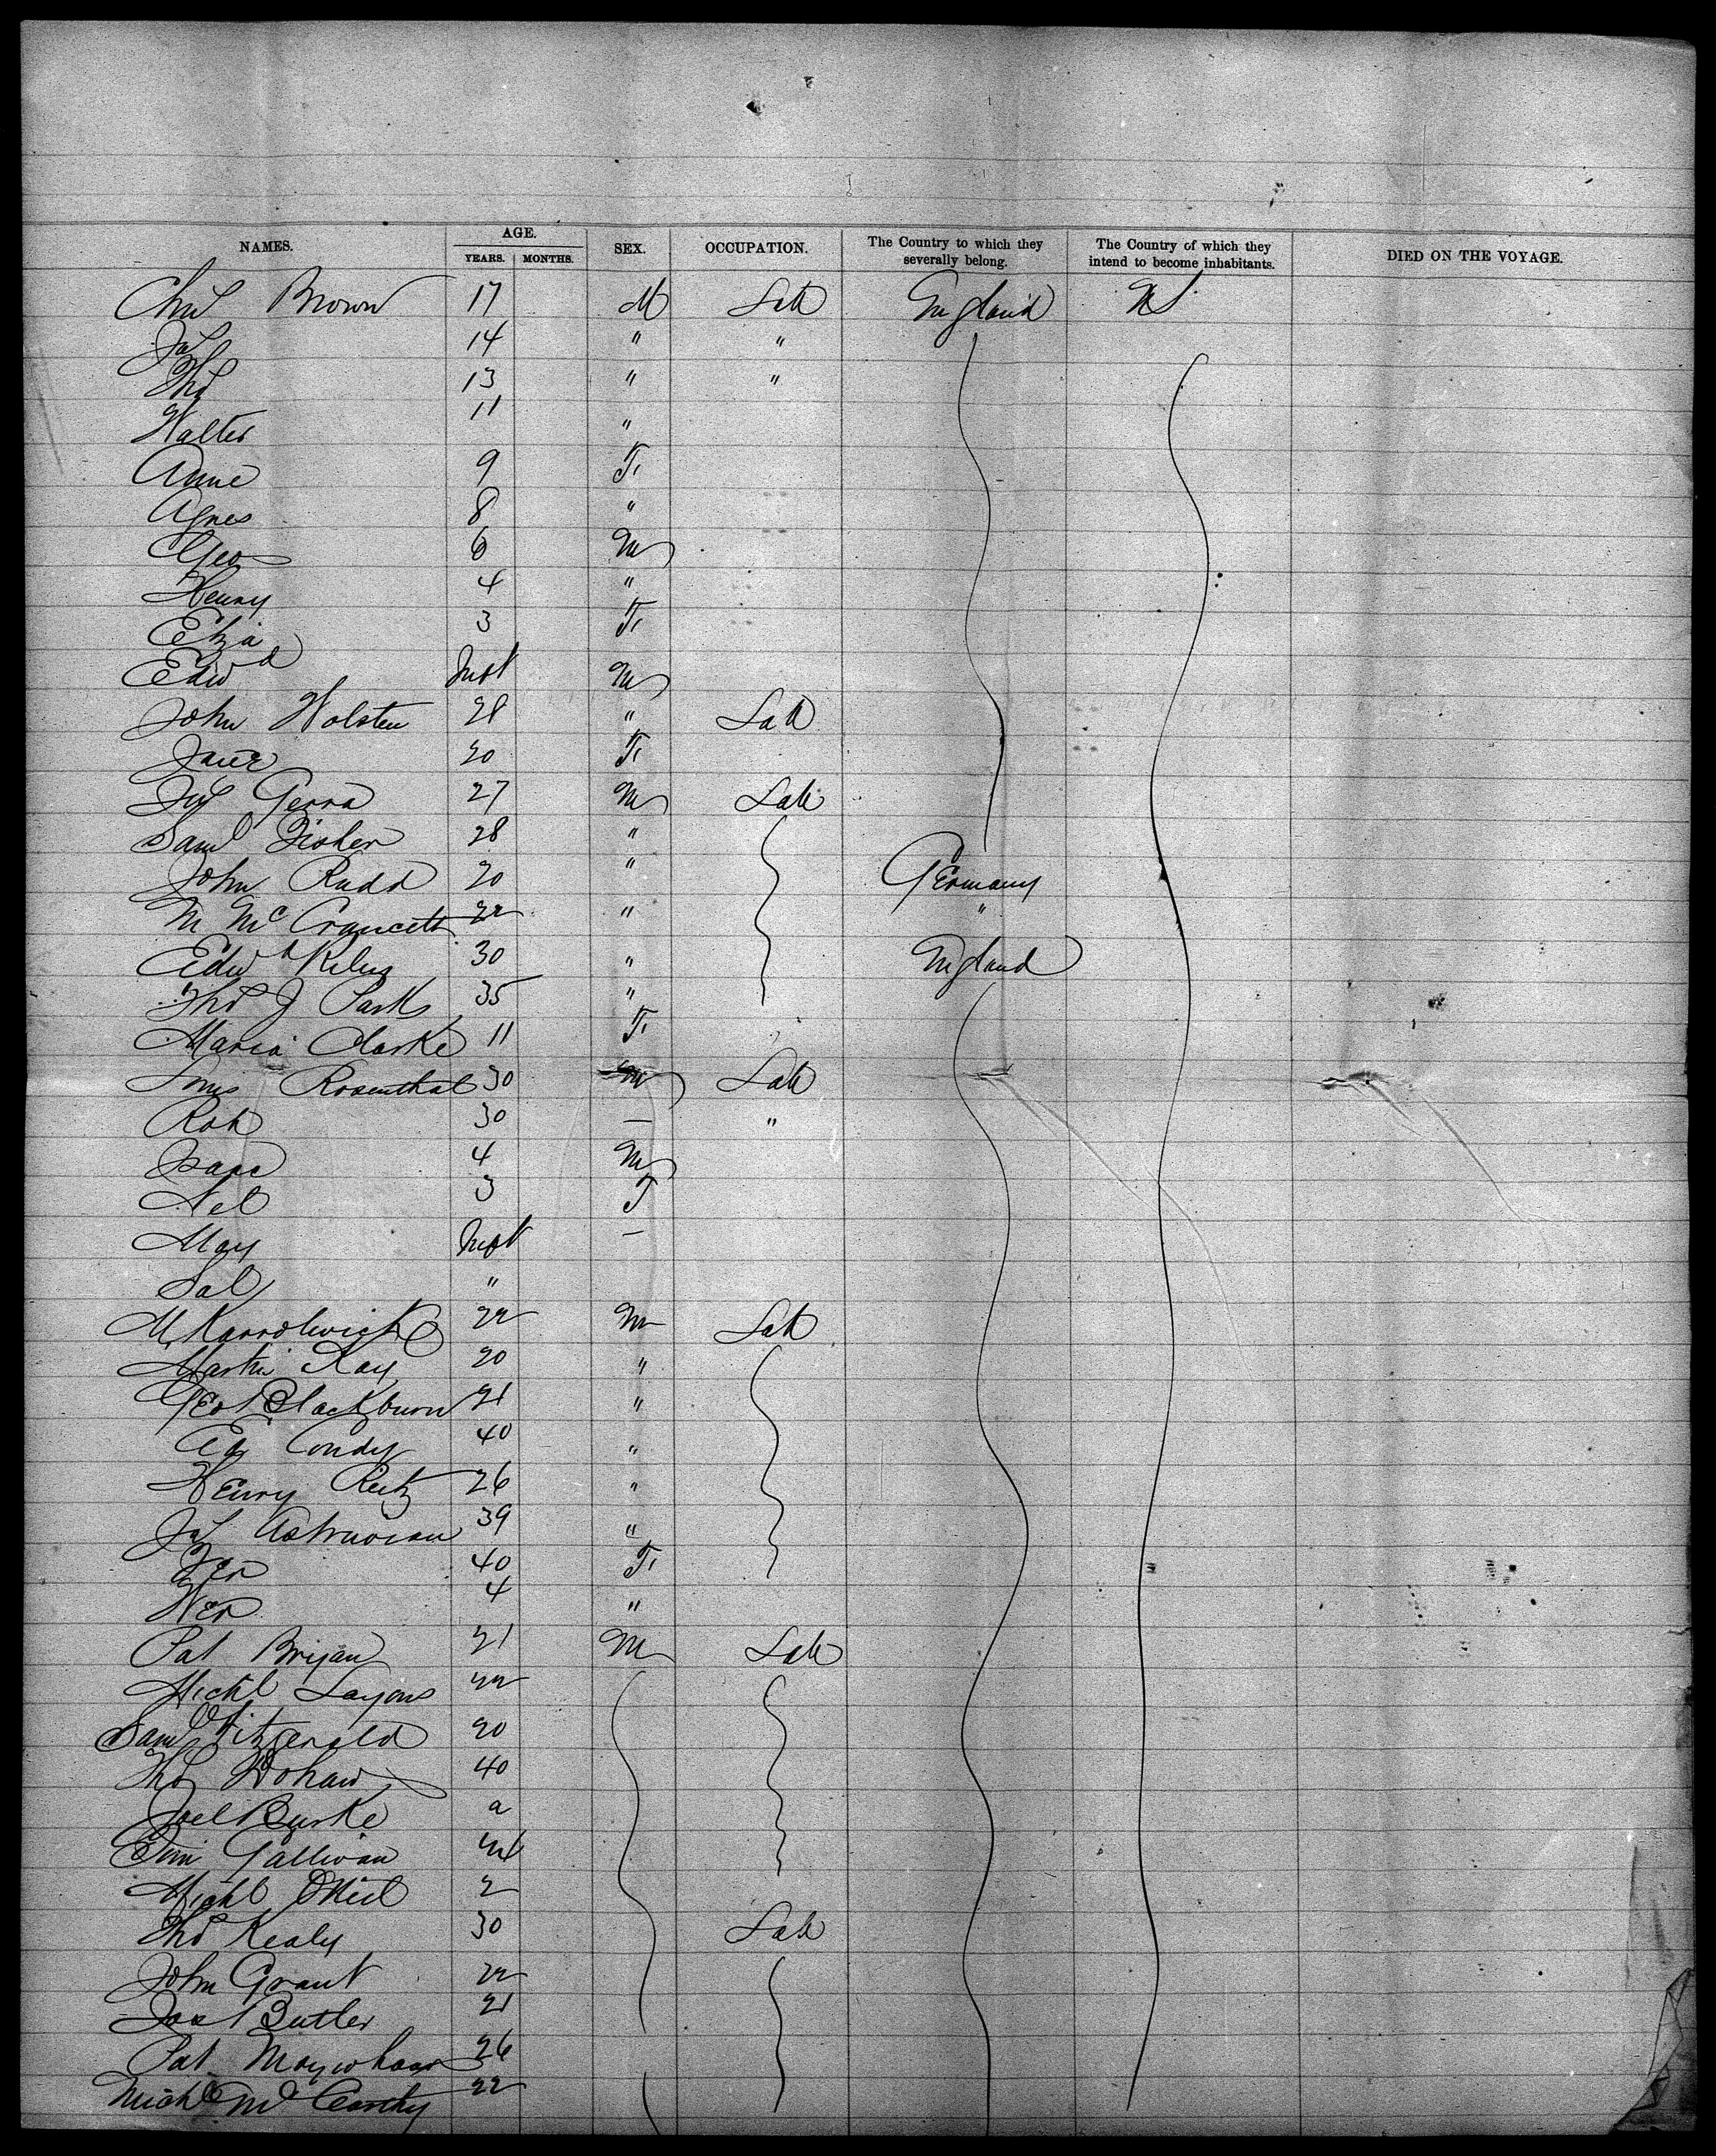 NAMES. AGE. SEX. OCCUPATION. The Country to which they severally belong. The Country of which they intend to become inhabitants. DIED ON THE VOYAGE.
YEARS. MONTHS.
Brown 17 M Lab England US
Jas 14 " "
Thos 13 " "
Walter 11 "
Anne 9 F
Agnes 8 "
Geo 6 M
Henry 4 "
Eliza 3 F
Edwd Inft M
John Holsten 28 " Lab
Jane 20 F
27 M Lab
Saml Fisher 28 "
John Rudd 20 " Germany
M Mc 22 " "
Edwd 30 " England
Thos J Parks 35 "
Maria Clarke 11 F
Louis Rosenthal 30 M Lab
30 — "
Isaac 4 M
3 F
May Inft —
Sal "
M 22 M Lab
Martin Kay 20 "
Geo Blackburn 21 "
Ed Condy 40 "
Henry 26 "
Jas 39 "
40 F
4 "
Pat Bryan 21 M Lab
Michl Layons 22
Saml Fitzgerald 20
Thos 40
Joel Burke a
Tim Gallivan
Michl ONeil 2
Thos Kealy 30 Lab
John Grant 22
Jas Butler 21
Pat 26
Michl Mc Carthy 22